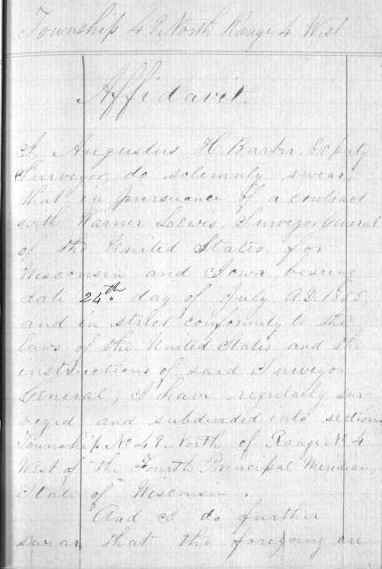 Township 49 North Range 4 West
Affidavit.
I, Augustus H. Barber Deputy
Surveyor, do solemnly swear
that in pursuance of a contract
with Warner Lewis, Surveyor General
of the United States, for
Wisconsin and Iowa bearing
date 24th day of July A.D. 1855,
and in strict conformity to the
laws of the United States and the
instructions of said Surveyor
General, I have regularly sur
veyed and subdivided into sections
Township No 49 North of Range No 4
West of the Fourth Principal Meridian,
State of Wisconsin.
And I do further
swear that the foregoing are